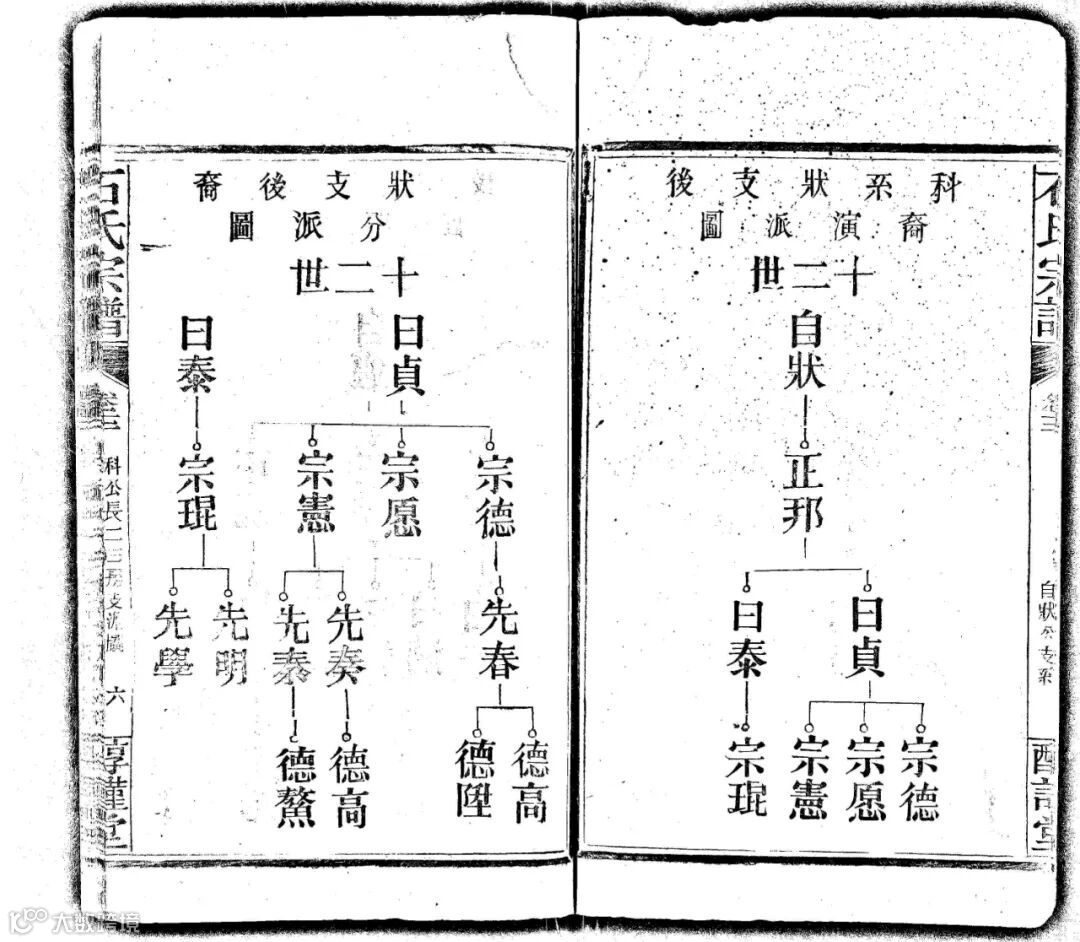 科系狀支後
裔演派圖
十二世
自狀
正邦
曰貞
曰泰
宗德
宗愿
宗憲
宗琨
自狀公支系
狀支後裔
分派圖
十二世
曰貞
曰泰
宗德
宗愿
宗憲
宗琨
先春
先奏
先泰
先明
先學
德高
德陞
德高
德鰲
石氏宗譜
卷三
科公長二三房支派
六
惇謹堂
大数跨境